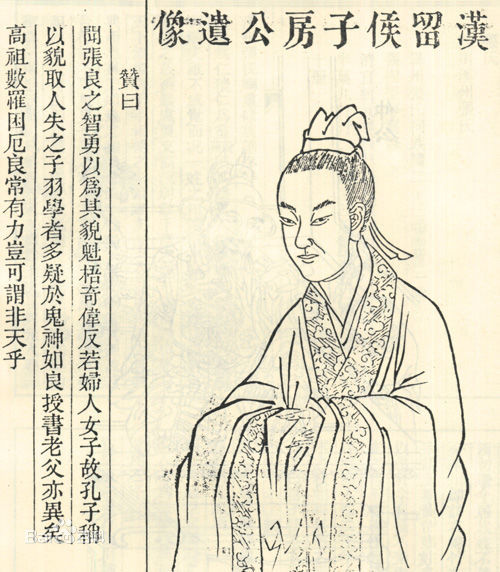 漢留侯子房公遺像
贊曰
聞張良之智勇以爲其貌魁梧奇偉反若婦人女子故孔子稱
以貌取人失之子羽學者多疑於鬼神如良授書老父亦異矣
高祖數罹困厄良常有力豈可謂非天乎